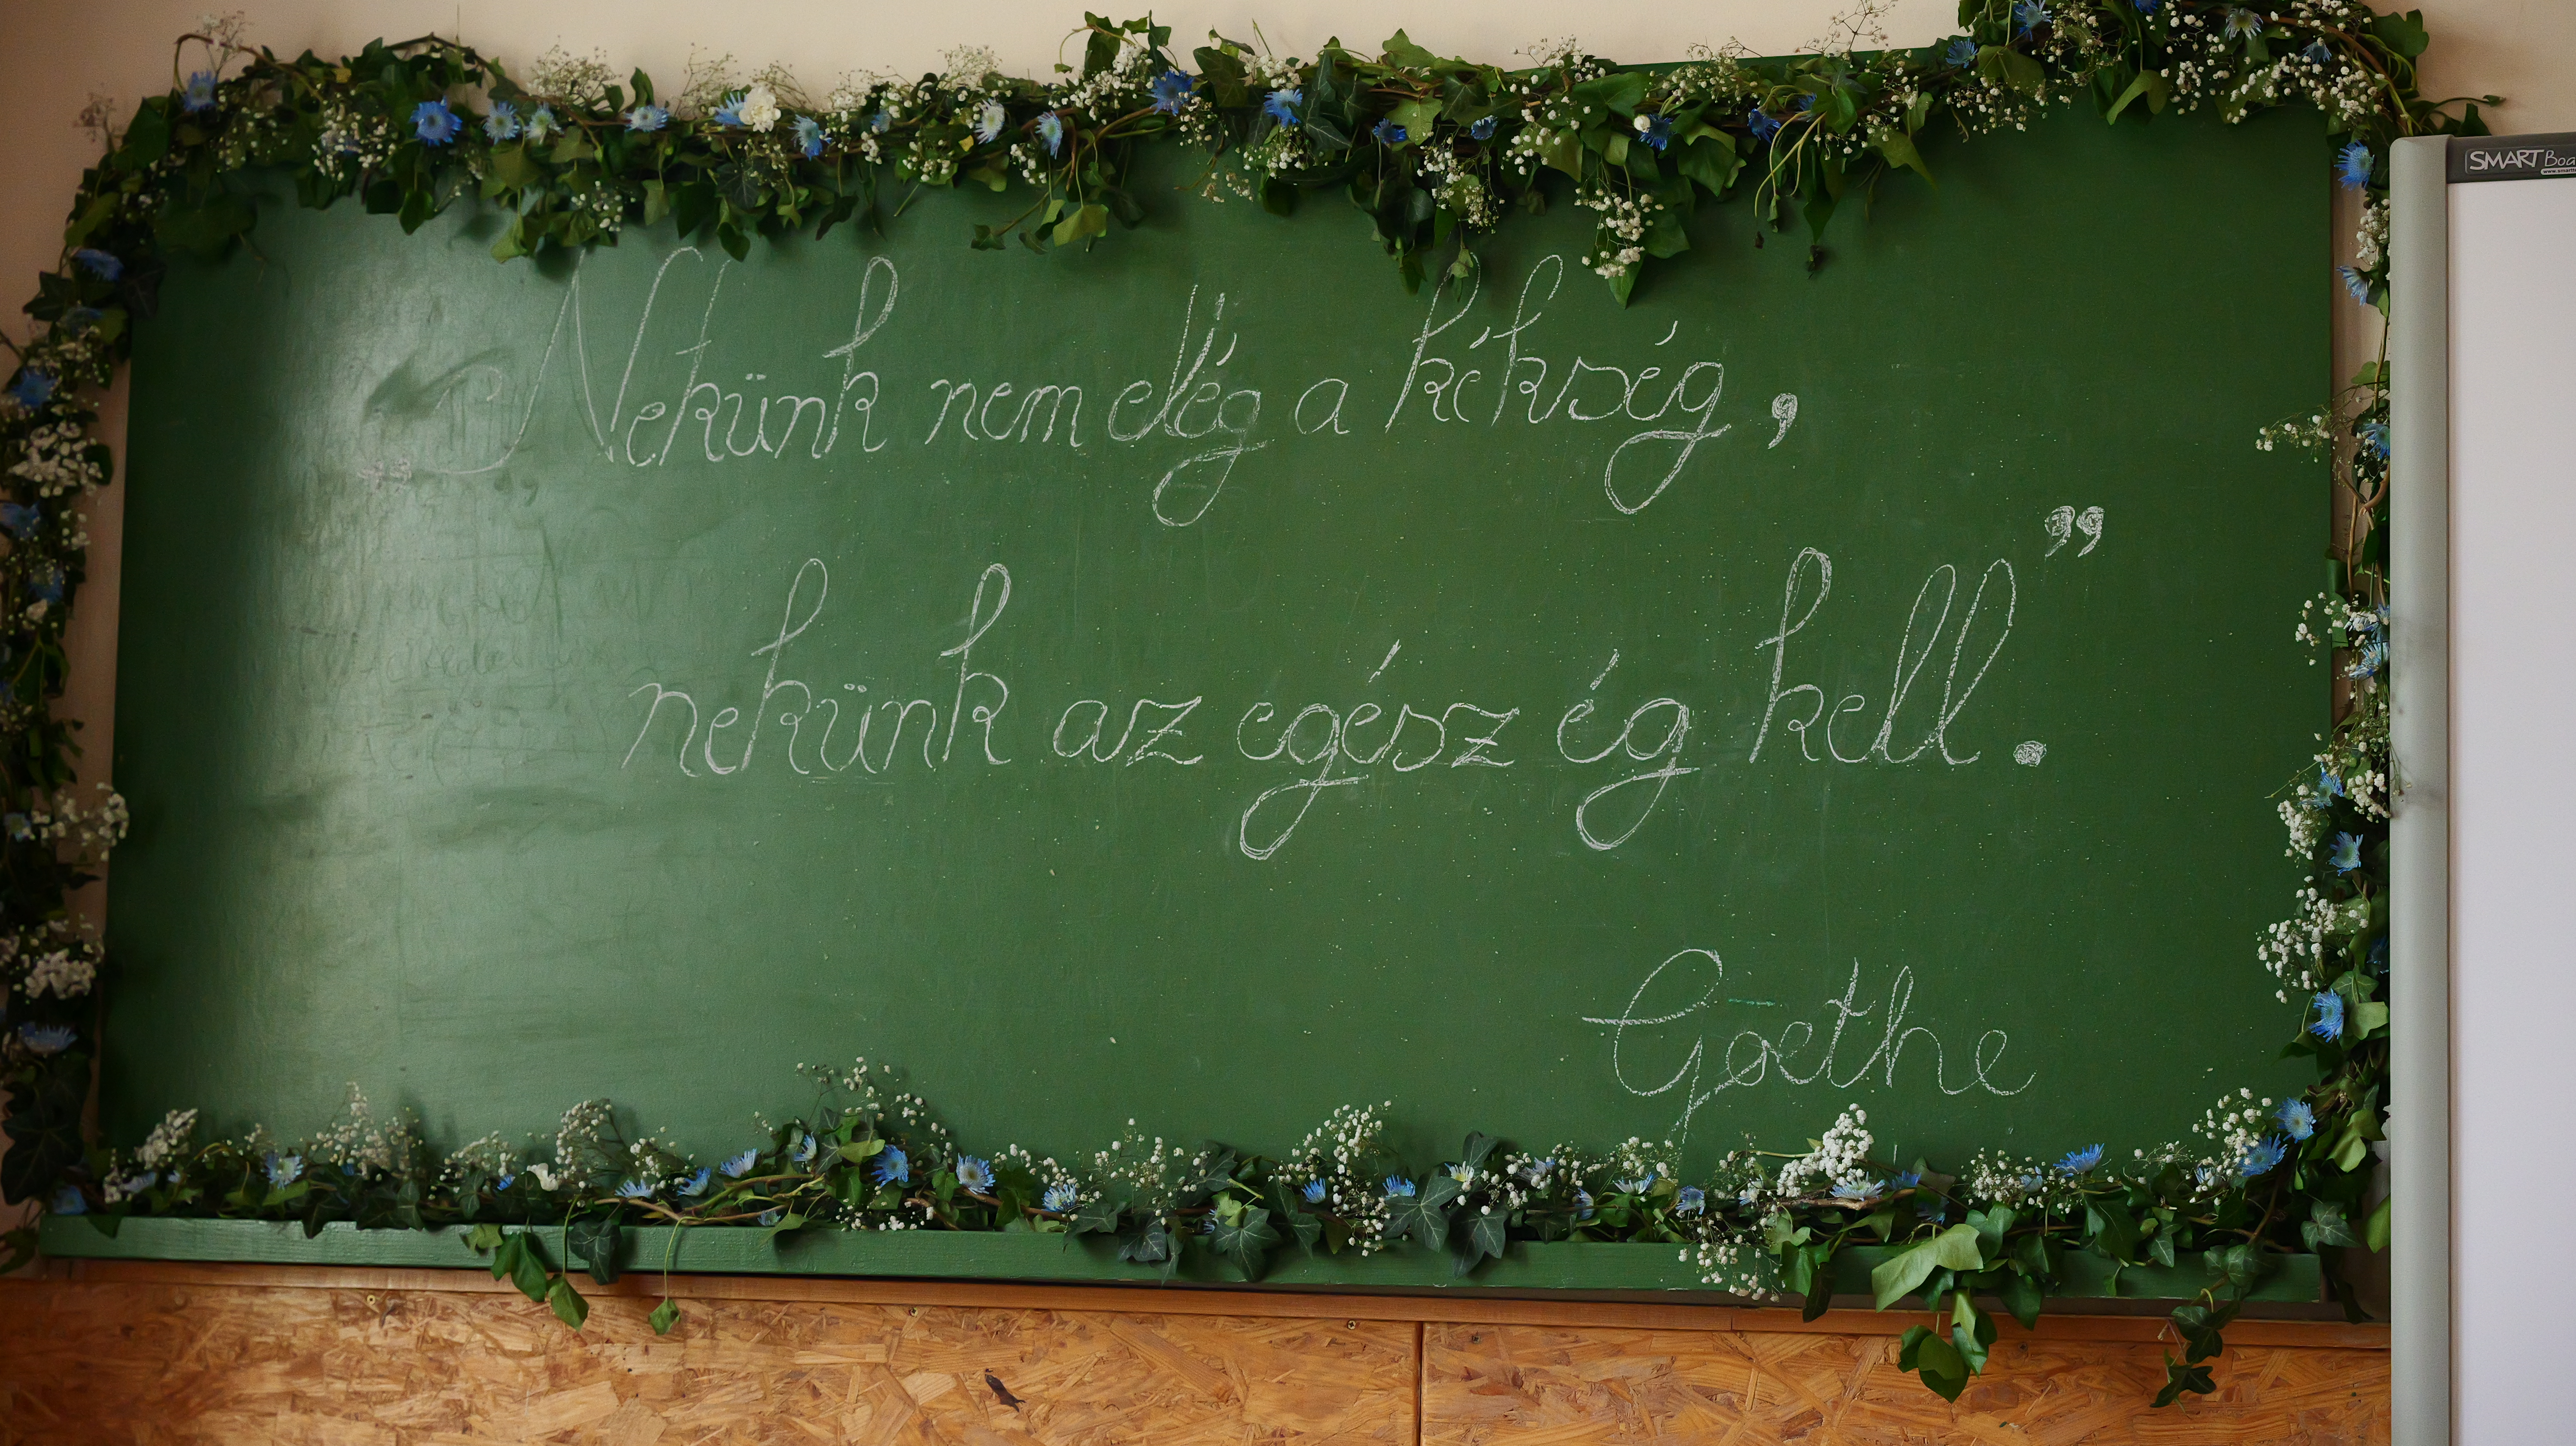 „Nekünk nem elég a kékség,
nekünk az egész ég kell.”
Goethe
SMART Boa